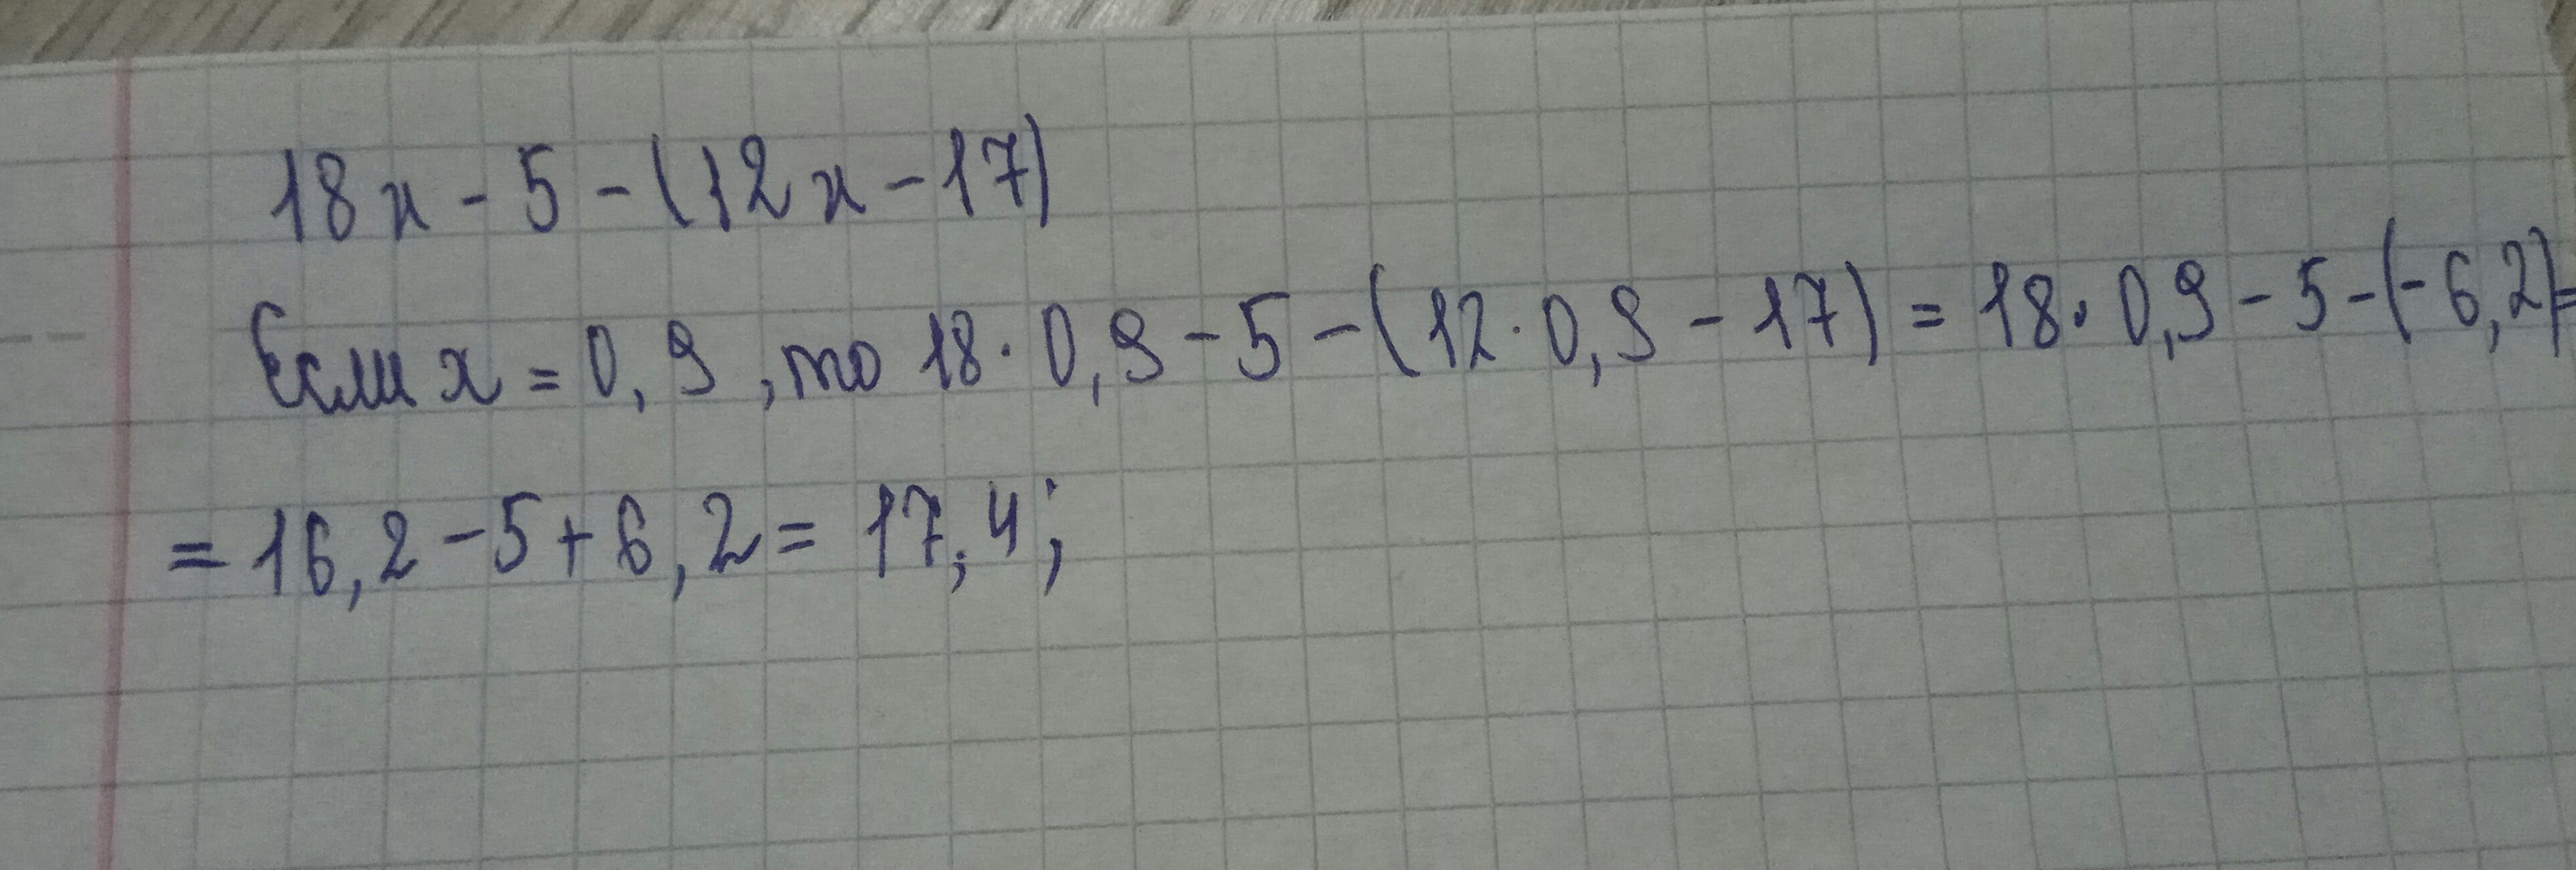 18x - 5 - (12x - 17)
Если x = 0,9, то 18 · 0,9 - 5 - (12 · 0,9 - 17) = 18 · 0,9 - 5 - (-6,2) =
= 16,2 - 5 + 6,2 = 17,4;